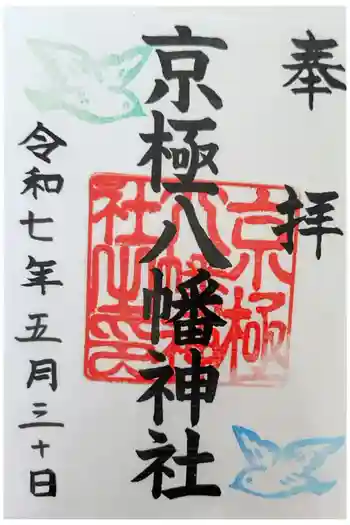 奉拝
京極八幡神社
令和七年五月三十日
京極
八幡神
社之印